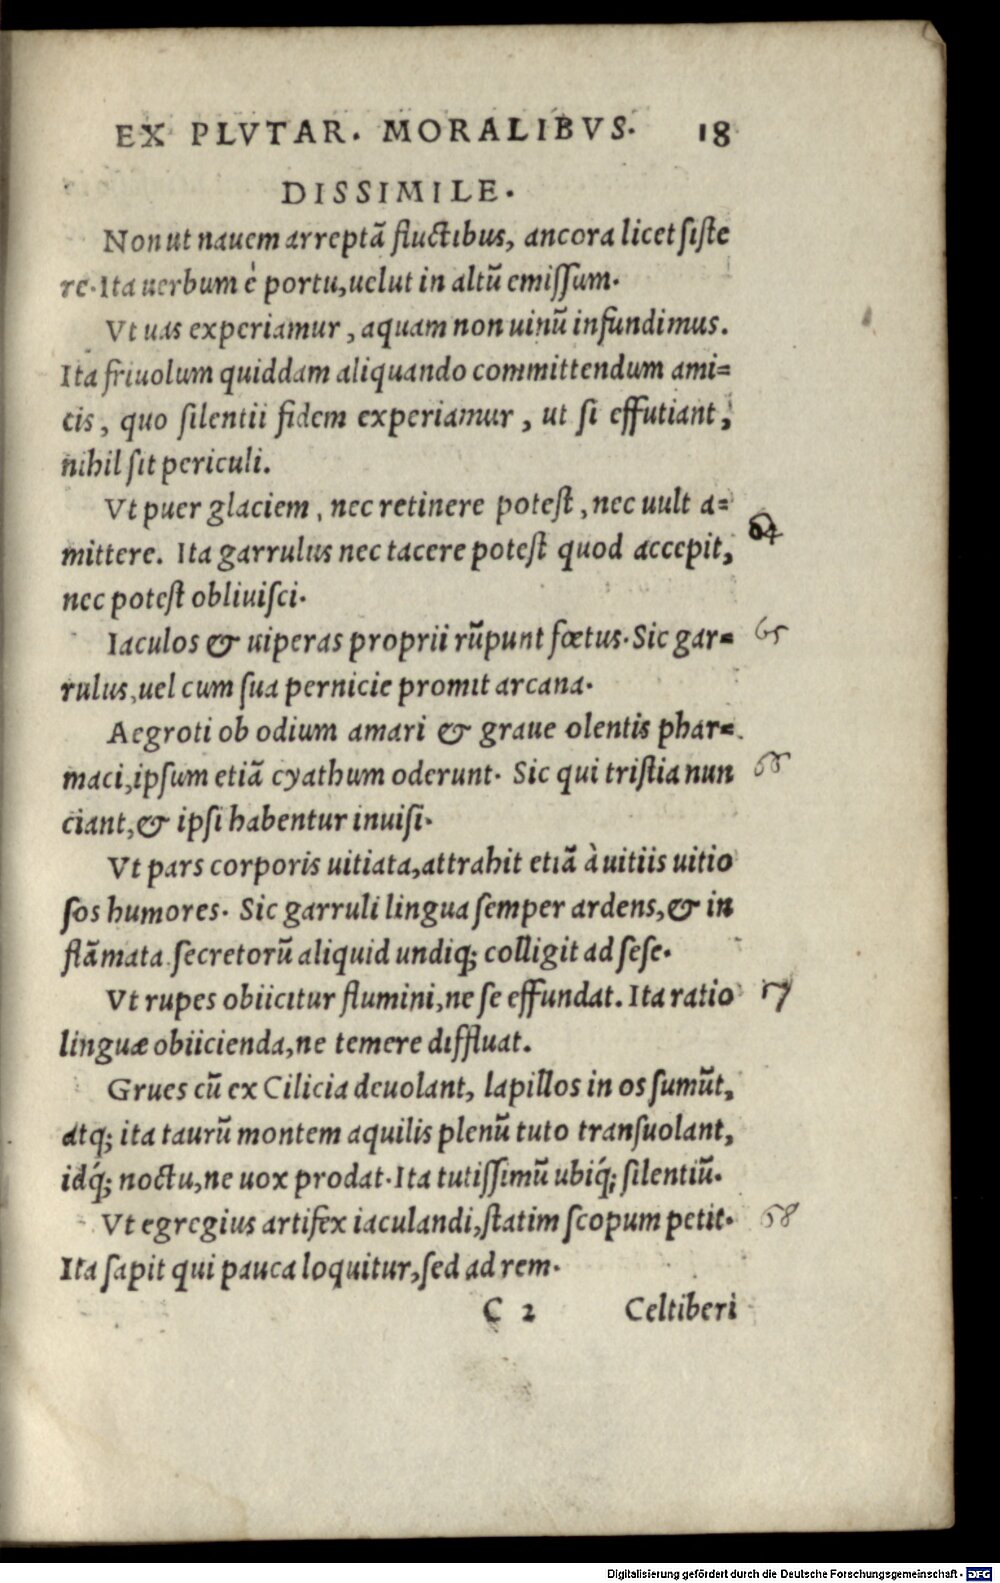 EX PLVTAR. MORALIBVS. 18
DISSIMILE.
Non ut nauem arreptã fluctibus, ancora licet siste
re. Ita uerbum è portu, uelut in altũ emissum.
Vt uas experiamur, aquam non uinũ infundimus.
Ita friuolum quiddam aliquando committendum ami=
cis, quo silentii fidem experiamur, ut si effutiant,
nihil sit periculi.
Vt puer glaciem, nec retinere potest, nec uult a=
mittere. Ita garrulus nec tacere potest quod accepit,
64
nec potest obliuisci.
Iaculos & uiperas proprii rũpunt fœtus. Sic gar=
65
rulus, uel cum sua pernicie promit arcana.
Aegroti ob odium amari & graue olentis phar=
maci, ipsum etiã cyathum oderunt. Sic qui tristia nun
ciant, & ipsi habentur inuisi.
Vt pars corporis uitiata, attrahit etiã à uitiis uitio
sos humores. Sic garruli lingua semper ardens, & in
flãmata secretorũ aliquid undiq; colligit ad sese.
Vt rupes obiicitur flumini, ne se effundat. Ita ratio
linguæ obiicienda, ne temere diffluat.
Grues cũ ex Cilicia deuolant, lapillos in os sumũt,
atq; ita taurũ montem aquilis plenũ tuto transuolant,
idq́; noctu, ne uox prodat. Ita tutissimũ ubiq́; silentiũ.
Vt egregius artifex iaculandi, statim scopum petit.
68
Ita sapit qui pauca loquitur, sed ad rem.
C 2 Celtiberi
Digitalisierung gefördert durch die Deutsche Forschungsgemeinschaft - DFG